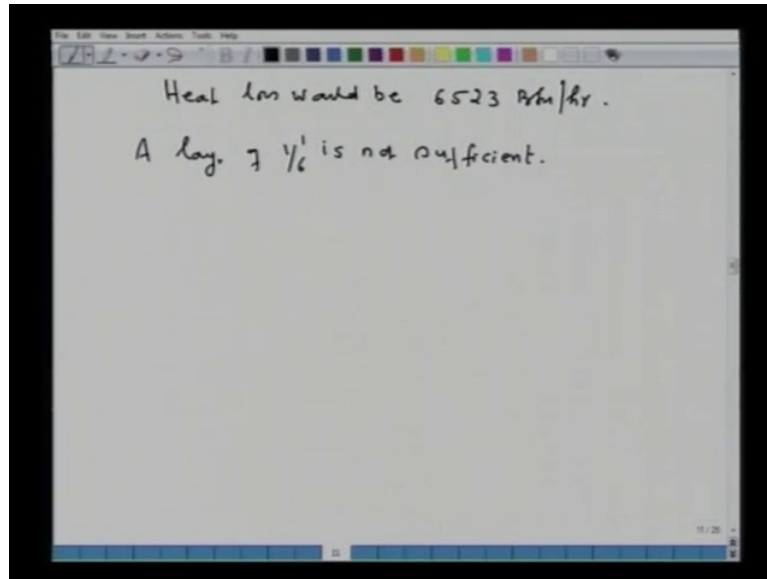 File Edit View Insert Actions Tools Help
Heat loss would be 6523 Btu/hr.
A lay. of 1/6' is not sufficient.
11 / 25
11